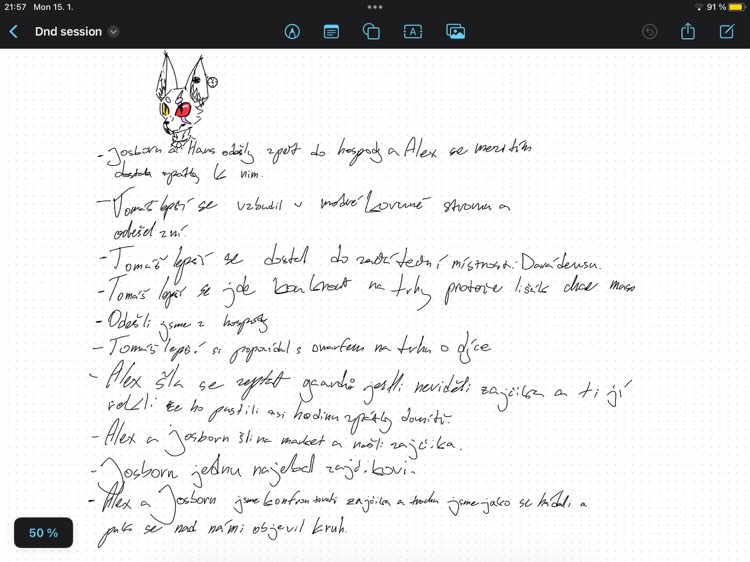 21:57 Mon 15. 1.
91 %
Dnd session
- Josborn a Hans odešly zpět do hospody a Alex se mezitím
dostala zpátky k nim.
- Tomáš lepší se vzbudil v modré koruně stromu a
odešel z ní.
- Tomáš lepší se dostal do místnosti
- Tomáš lepší se jde kouknout na trhy protože lišák chce maso
- Odešli jsme z hospody
- Tomáš lepší si popovídal s dwarfem na trhu o dýce
- Alex šla se zeptat guardů jestli neviděli zajčíka a ti jí
řekli že ho pustili asi hodinu zpátky dovnitř.
- Alex a Josborn šli na market a našli zajčíka.
- Josborn jednu najebal zajčíkovi.
- Alex a Josborn jsme konfrontovali zajčíka a trochu jsme jako se hádali a
pak se nad námi objevil kruh.
50 %